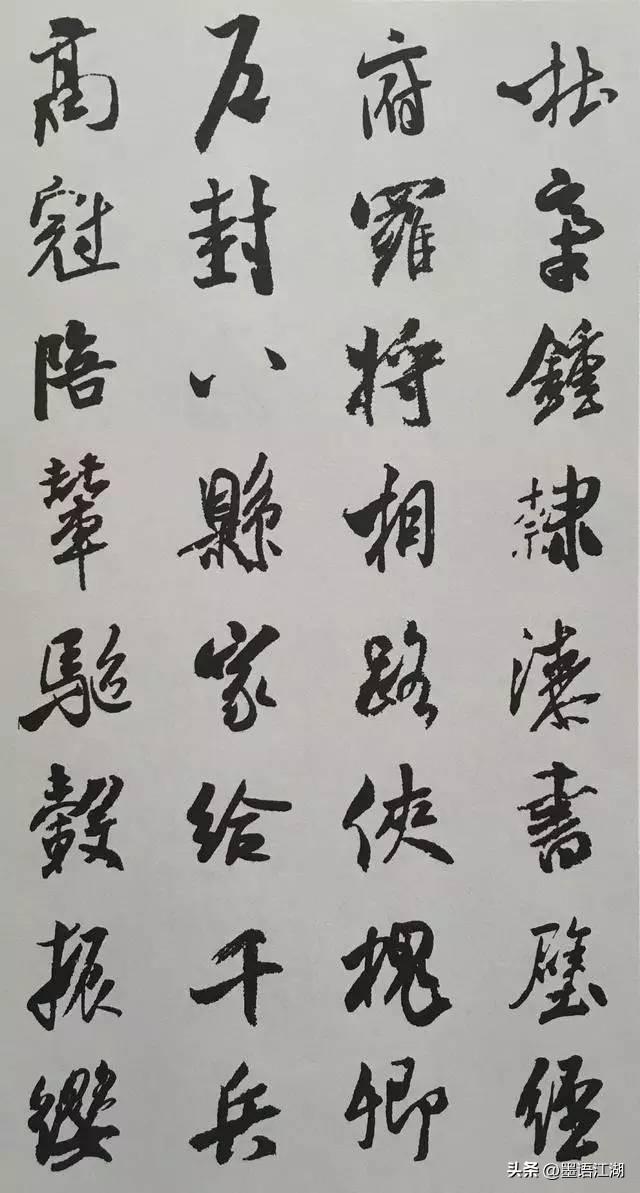 杜稾鍾隸漆書壁經
府羅將相路俠槐卿
戶封八縣家給千兵
高冠陪輦驅轂振纓
头条 @墨语江湖